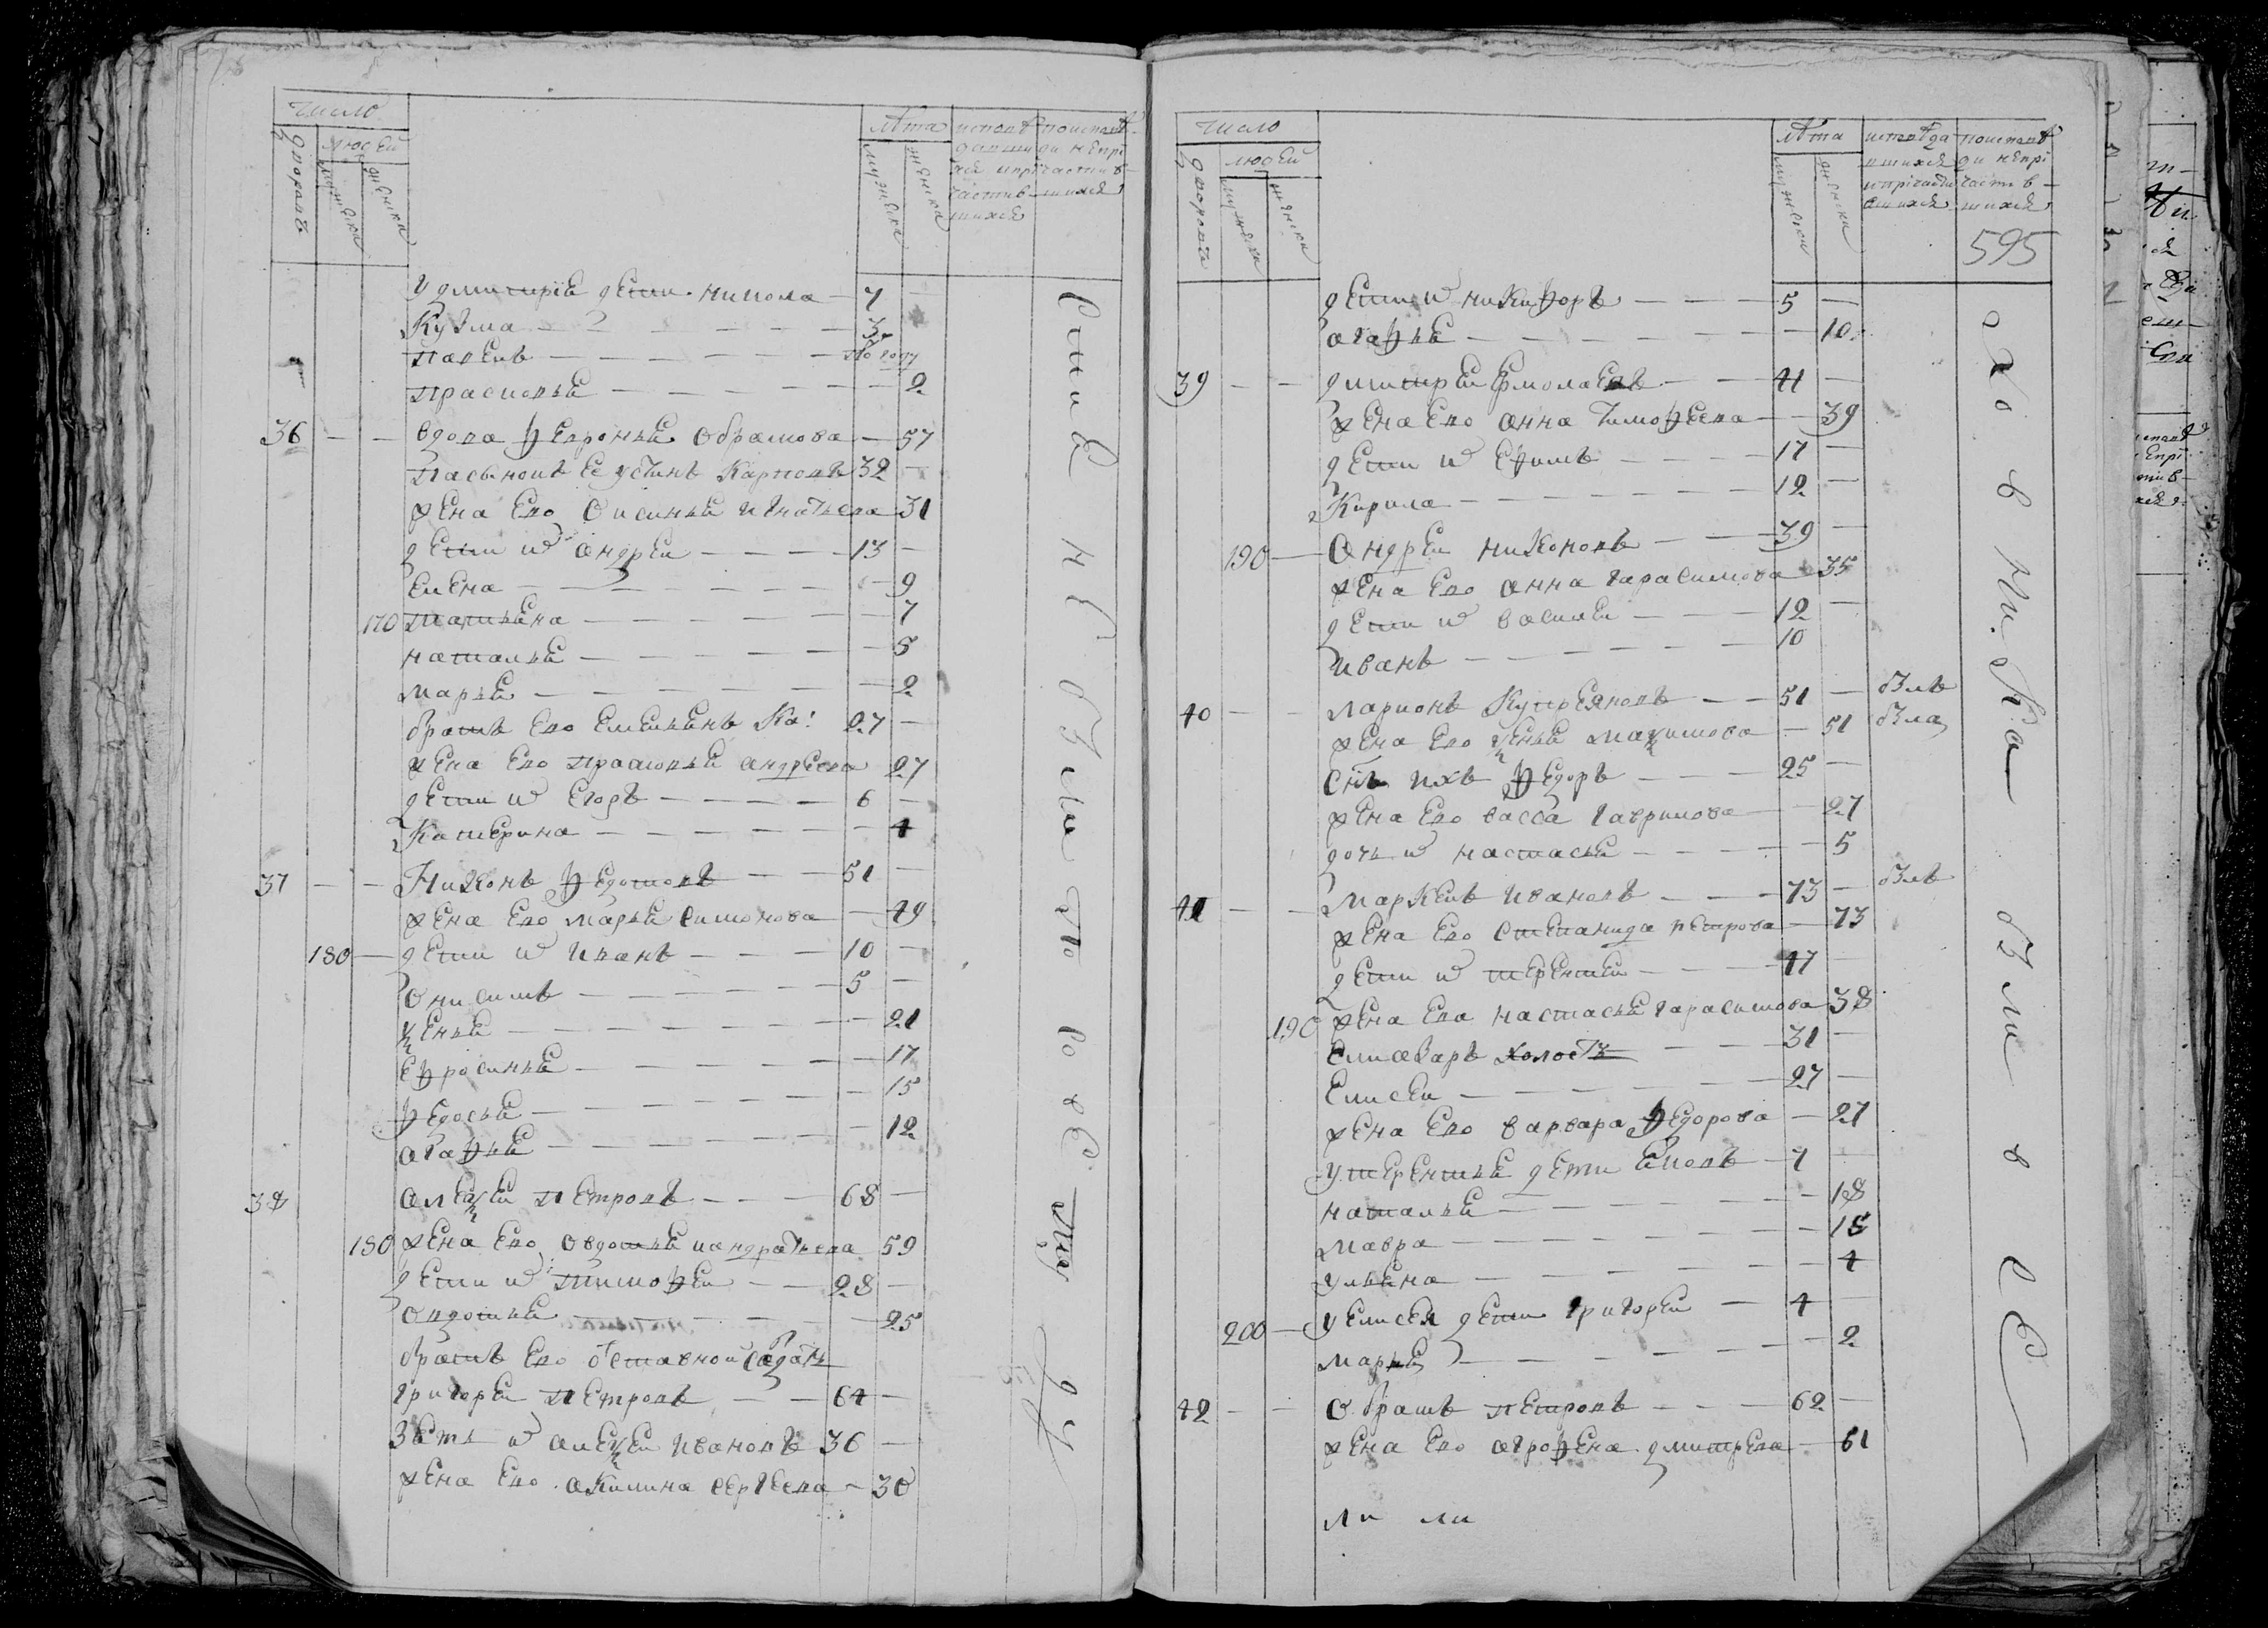 число
лѣта
исповѣ
поисповѣ
дворовъ
людей
мужеска
женска
мужеска
женска
давши
ди непрі
хся ипрі
частив
частив
шихся
шихся
У дмитрія дети никола — 7 —
Кузма — 3
павелъ — по году
прасковья — 2
36 — — вдова Ѳевронья обрамова — 57
пасынокъ Ее устинъ Карповъ 32 —
жена Его игнатьева 31
дети ихъ андреи — 13 —
Елена — 9
170 татьяна — 7
наталья — 5
марья — 2
братъ Его Емельянъ Ка: 27 —
жена Его прасковья андреева 27
дети ихъ Егоръ — 6 —
Катерина — 4
37 — — Никонъ Ѳедотовъ — 51 —
жена Его марья симонова — 49
180 — дети ихъ иванъ — 10 —
онисимъ — 5 —
ѯенья — 21
еѳросинья — 17
Ѳедосья — 15
агаѳья — 12
38 алеѯеи петровъ — 68 —
180 жена Его овдотья кандратьева 59
дети ихъ тимоѳеи — 28 —
овдотья — 25
братъ Его отставной салдатъ
григореи петровъ — 64 —
Зять ихъ алеѯеи ивановъ 36 —
жена Его акилина сергеева — 30
сии не бЗли по розъезду
число
лѣта
исповѣда
поисповѣ
дворовъ
людей
мужеска
женска
мужеска
женска
вшихся
ди непрі
ипричасти
части в
вшихся
шихся
595
дети ихъ никиѳоръ — 5 —
агаѳья — 10
39 — — дмитреи Ермолаевъ — 41 —
жена Его анна тимоѳеева — 39
дети ихъ Еѳимъ — 17 —
Кирила — 12 —
190 — андреи никоновъ — 39 —
жена Его анна гарасимова 35
дети ихъ василеи — 12 —
иванъ — 10
40 — — ларионъ Купреяновъ — 51 — бЗлъ
жена Его ѯенья маѯимова — 51 бЗла
снъ ихъ Ѳедоръ — 25 —
жена Его васса гаврилова — 27
дочь ихъ настасья — 5
41 — — маркелъ ивановъ — 73 — бЗлъ
жена Его степанида петрова — 73
дети ихъ терентеи — 47 —
190 жена Его настасья гарасимова 38
Елиазаръ холостъ — 31 —
Елисеи — 27 —
жена Его варвара Ѳедорова — 27
У терентья дети яковъ — 7
наталья — 18
мавра — 18
ульяна — 4
200 — У елисея дети григореи — 4 —
марья — 2
42 — — обрамъ петровъ — 62 —
жена Его агроѳена дмитрева — 61